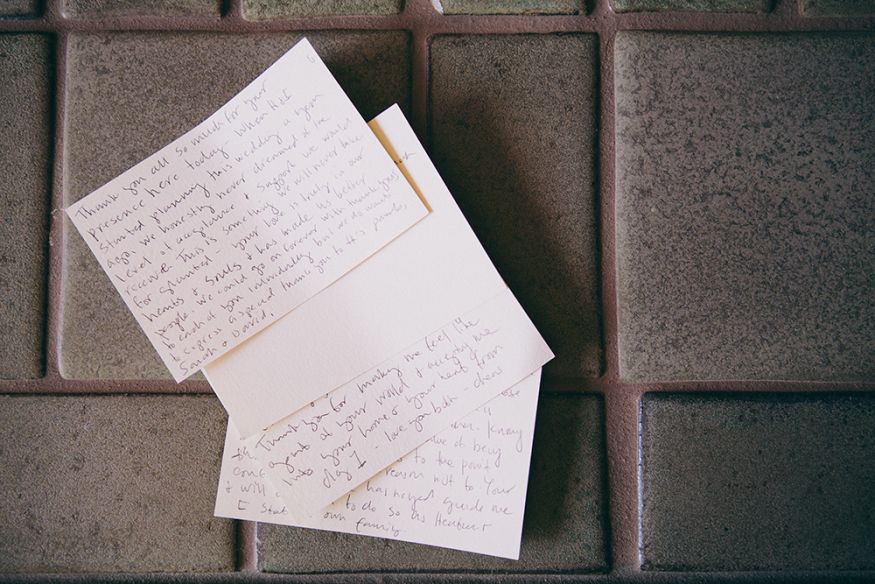 Thank you all so much for your
presence here today. When H & I
started planning this wedding a year
ago, we honestly never dreamed of the
level of acceptance & support we would
receive. This is something we will never take
for granted & your love is truly in our
hearts & souls & has made us better
people. We could go on forever with thank yous
to each of you individually but we do want
to express a special thank you to H's parents,
Sarah & David.
Thank you for making me feel like
part of your world & accepting me
into your home & your heart from
day 1. love you both - cheers
know
of being
to the point
reason not to. Your
& will has helped guide me
to do so as Heather &
own family.